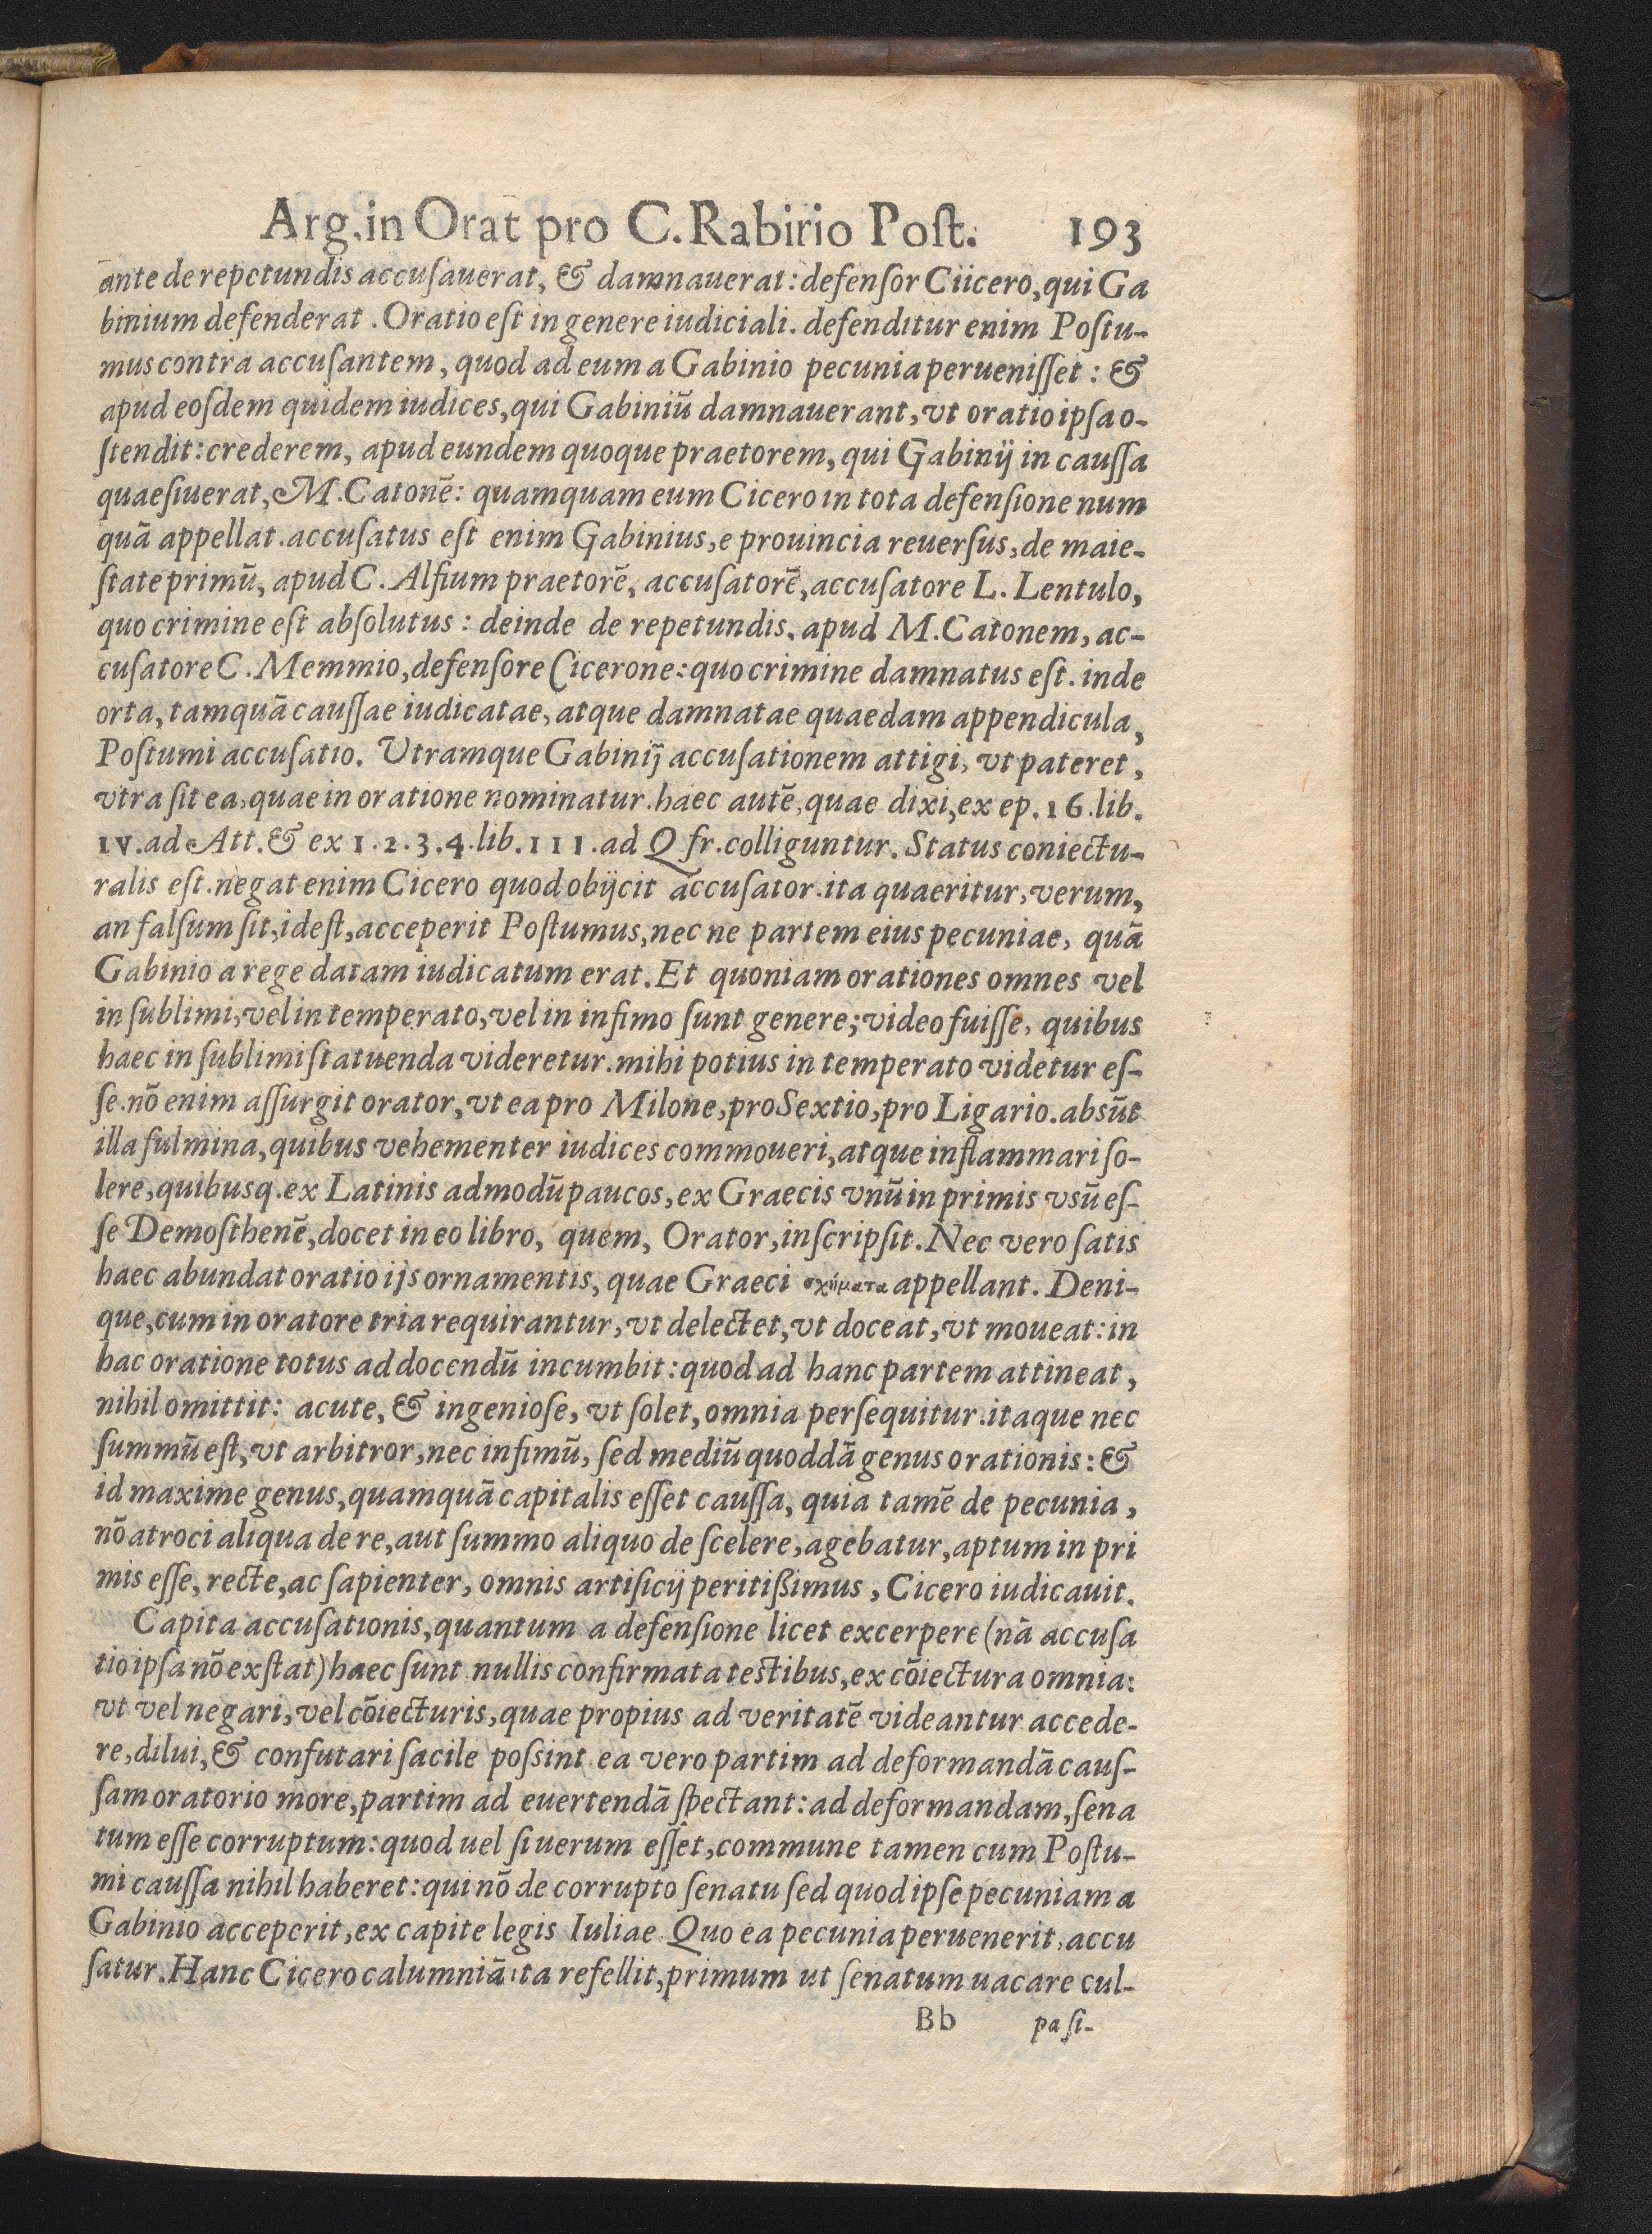 Arg. in Orat pro C. Rabirio Poſt. 193
ante de repetundis accuſauerat, & damnauerat: defenſor Ciicero, qui Ga
binium defenderat. Oratio eſt in genere iudiciali. defenditur enim Poſtu-
mus contra accuſantem, quod ad eum a Gabinio pecunia perueniſſet: &
apud eoſdem quidem iudices, qui Gabiniū damnauerant, vt oratio ipſa o-
ſtendit: crederem, apud eundem quoque praetorem, qui Gabinij in cauſſa
quaeſiuerat, M. Catonē: quamquam eum Cicero in tota defenſione num
quā appellat. accuſatus eſt enim Gabinius, e prouincia reuerſus, de maie-
ſtate primū, apud C. Alfium praetorē, accuſatorē, accuſatore L. Lentulo,
quo crimine eſt abſolutus: deinde de repetundis, apud M. Catonem, ac-
cuſatore C. Memmio, defenſore Cicerone: quo crimine damnatus eſt. inde
orta, tamquā cauſſae iudicatae, atque damnatae quaedam appendicula,
Poſtumi accuſatio. Utramque Gabinij accuſationem attigi, vt pateret,
vtra ſit ea, quae in oratione nominatur. haec autē, quae dixi, ex ep. 16. lib.
IV. ad Att. & ex 1. 2. 3. 4. lib. III. ad Q fr. colliguntur. Status coniectu-
ralis eſt. negat enim Cicero quod obijcit accuſator. ita quaeritur, verum,
an falſum ſit, ideſt, acceperit Poſtumus, nec ne partem eius pecuniae, quā
Gabinio a rege datam iudicatum erat. Et quoniam orationes omnes vel
in ſublimi, vel in temperato, vel in infimo ſunt genere; video fuiſſe, quibus
haec in ſublimi ſtatuenda videretur. mihi potius in temperato videtur eſ-
ſe. nō enim aſſurgit orator, vt ea pro Milone, pro Sextio, pro Ligario. abſūt
illa fulmina, quibus vehementer iudices commoueri, atque inflammari ſo-
lere, quibusq. ex Latinis admodū paucos, ex Graecis vnū in primis vsū eſ-
ſe Demoſthenē, docet in eo libro, quem, Orator, inſcripſit. Nec vero ſatis
haec abundat oratio ijs ornamentis, quae Graeci σχήματα appellant. Deni-
que, cum in oratore tria requirantur, vt delectet, vt doceat, vt moueat: in
hac oratione totus ad docendū incumbit: quod ad hanc partem attineat,
nihil omittit: acute, & ingenioſe, vt ſolet, omnia perſequitur. itaque nec
ſummū eſt, vt arbitror, nec infimū, ſed mediū quoddā genus orationis: &
id maxime genus, quamquā capitalis eſſet cauſſa, quia tamē de pecunia,
nō atroci aliqua de re, aut ſummo aliquo de ſcelere, agebatur, aptum in pri
mis eſſe, recte, ac ſapienter, omnis artificij peritißimus, Cicero iudicauit.
Capita accuſationis, quantum a defenſione licet excerpere (nā accuſa
tio ipſa nō exſtat) haec ſunt nullis confirmata teſtibus, ex cōiectura omnia:
vt vel negari, vel cōiecturis, quae propius ad veritatē videantur accede-
re, dilui, & confutari facile poſsint ea vero partim ad deformandā cauſ-
ſam oratorio more, partim ad euertendā ſpectant: ad deformandam, ſena
tum eſſe corruptum: quod uel ſi uerum eſſet, commune tamen cum Poſtu-
mi cauſſa nihil haberet: qui nō de corrupto ſenatu ſed quod ipſe pecuniam a
Gabinio acceperit, ex capite legis Iuliae. Quo ea pecunia peruenerit, accu
ſatur. Hanc Cicero calumniā ita refellit, primum ut ſenatum uacare cul-
Bb pa ſi-